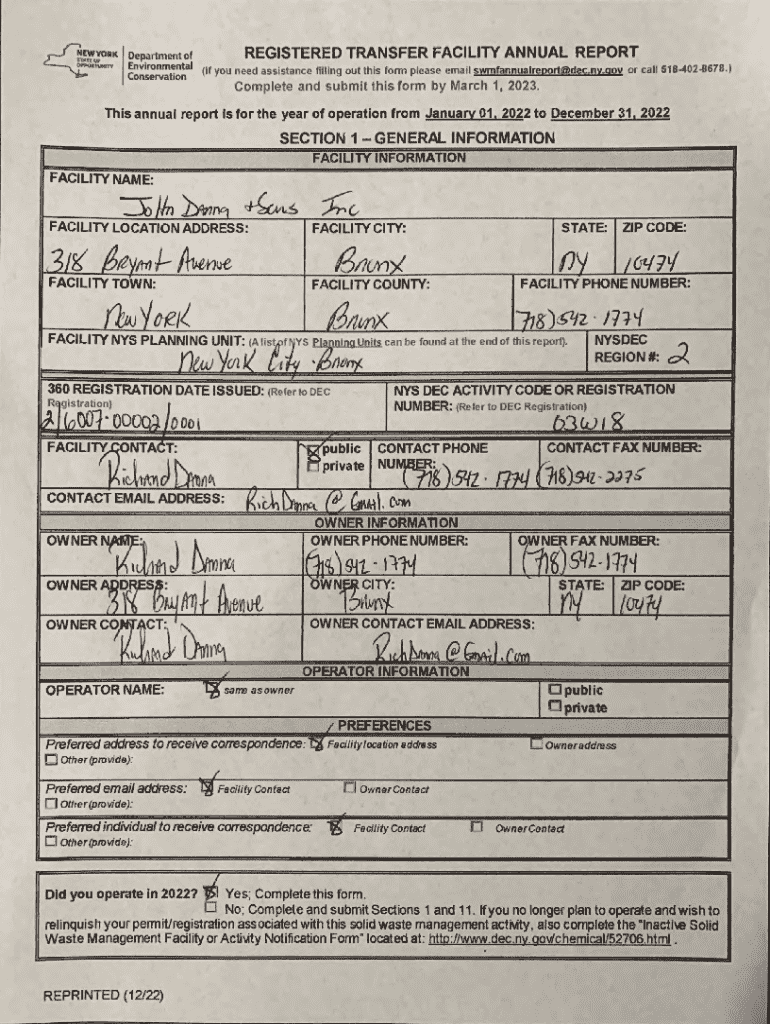 NEW YORK
STATE OF
OPPORTUNITY
Department of
Environmental
Conservation
REGISTERED TRANSFER FACILITY ANNUAL REPORT
(If you need assistance filling out this form please email swmfannualreport@dec.ny.gov or call 518-402-8678.)
Complete and submit this form by March 1, 2023.
This annual report is for the year of operation from January 01, 2022 to December 31, 2022
SECTION 1 – GENERAL INFORMATION
FACILITY INFORMATION
FACILITY NAME:
John Danna + Sons Inc
FACILITY LOCATION ADDRESS: FACILITY CITY: STATE: ZIP CODE:
318 Bryant Avenue Bronx NY 10474
FACILITY TOWN: FACILITY COUNTY: FACILITY PHONE NUMBER:
New York Bronx 718) 542 - 1774
FACILITY NYS PLANNING UNIT: (A list of NYS Planning Units can be found at the end of this report). NYSDEC
New York City - Bronx REGION #: 2
360 REGISTRATION DATE ISSUED: (Refer to DEC NYS DEC ACTIVITY CODE OR REGISTRATION
Registration) NUMBER: (Refer to DEC Registration)
2/6007-00002/0001 03W18
FACILITY CONTACT: public CONTACT PHONE CONTACT FAX NUMBER:
Richard Danna private NUMBER: (718) 542 - 1774 (718) 542-2275
CONTACT EMAIL ADDRESS: RichDanna @ Gmail. Com
OWNER INFORMATION
OWNER NAME: OWNER PHONE NUMBER: OWNER FAX NUMBER:
Richard Danna (718) 542 - 1774 (718) 542-1774
OWNER ADDRESS: OWNER CITY: STATE: ZIP CODE:
318 Bryant Avenue Bronx NY 10474
OWNER CONTACT: OWNER CONTACT EMAIL ADDRESS:
Richard Danna RichDanna @ Gmail. Com
OPERATOR INFORMATION
OPERATOR NAME: same as owner public
private
PREFERENCES
Preferred address to receive correspondence: Facility location address Owner address
Other (provide):
Preferred email address: Facility Contact Owner Contact
Other (provide):
Preferred individual to receive correspondence: Facility Contact Owner Contact
Other (provide):
Did you operate in 2022? Yes; Complete this form.
No; Complete and submit Sections 1 and 11. If you no longer plan to operate and wish to
relinquish your permit/registration associated with this solid waste management activity, also complete the "Inactive Solid
Waste Management Facility or Activity Notification Form" located at: http://www.dec.ny.gov/chemical/52706.html .
REPRINTED (12/22)